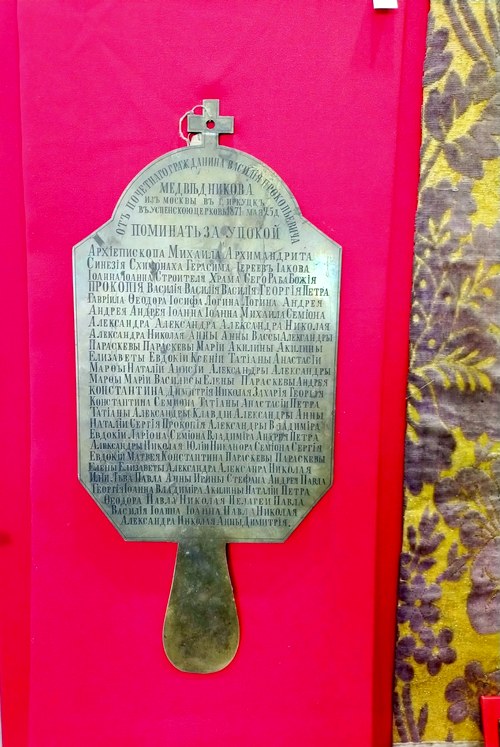 ОТЪ ПОЧЕТНАГО ГРАЖДАНИНА ВАСИЛІЯ ПРОКОПЬЕВИЧА
МЕДВѢДНИКОВА
ИЗЪ МОСКВЫ ВЪ Г. ИРКУТСК.
ВЪ УСПЕНСКОЮ ЦЕРКОВЬ 1871 МАЯ 25 Д.
ПОМИНАТЬ ЗА УПОКОЙ
АРХІЕПИСКОПА МИХАИЛА АРХИМАНДРИТА
СИНЕЗІЯ СХИМОНАХА ГЕРАСИМА ІЕРЕЕВЪ ІАКОВА
ІОАННА ІОАННА СТРОИТЕЛЯ ХРАМА СЕГО РАБА БОЖІЯ
ПРОКОПІЯ ВАСИЛІЯ ВАСИЛІЯ ВАСИЛІЯ ГЕОРГІЯ ПЕТРА
ГАВРІИЛА ѲЕОДОРА ІОСИФА ЛОГИНА ЛОГИНА АНДРЕЯ
АНДРЕЯ АНДРЕЯ ІОАННА ІОАННА МИХАИЛА СЕМІОНА
АЛЕКСАНДРА АЛЕКСАНДРА АЛЕКСАНДРА НИКОЛАЯ
АЛЕКСАНДРА НИКОЛАЯ АННЫ АННЫ ВАССЫ АЛЕКСАНДРЫ
ПАРАСКЕВЫ ПАРАСКЕВЫ МАРІИ АКИЛИНЫ АКИЛИНЫ
ЕЛИЗАВЕТЫ ЕВДОКІИ КСЕНІИ ТАТІАНЫ АНАСТАСІИ
МАРѲЫ НАТАЛІИ АНИСІИ АЛЕКСАНДРЫ АЛЕКСАНДРЫ
МАРѲЫ МАРІИ ВАСИЛИСЫ ЕЛЕНЫ ПАРАСКЕВЫ АНДРЕЯ
КОНСТАНТИНА ДИМИТРІЯ НИКОЛАЯ ЗАХАРІЯ ГЕОРГІЯ
КОНСТАНТИНА СЕМІОНА ТАТІАНЫ АНАСТАСІИ ПЕТРА
ТАТІАНЫ АЛЕКСАНДРЫ КЛАВДІИ АЛЕКСАНДРЫ АННЫ
НАТАЛІИ СЕРГІЯ ПРОКОПІЯ АЛЕКСАНДРЫ ВЛАДИМІРА
ЕВДОКІИ ЛАРІОНА СЕМІОНА ВЛАДИМІРА АНДРЕЯ ПЕТРА
АЛЕКСАНДРЫ НИКОЛАЯ ЮЛІИ НИКАНОРА СЕМІОНА СЕРГІЯ
ЕВДОКІИ МАТВЕЯ КОНСТАНТИНА ПАРАСКЕВЫ ПАРАСКЕВЫ
ЕЛЕНЫ ЕЛИЗАВЕТЫ АЛЕКСАНДРА АЛЕКСАНДРА НИКОЛАЯ
ПАВЛА АННЫ ИРИНЫ СТЕФАНА АНДРЕЯ ПАВЛА
ГЕОРГІЯ ІОАННА ВЛАДИМІРА АКИЛИНЫ НАТАЛІИ ПЕТРА
ѲЕОДОРА ПАВЛА НИКОЛАЯ ПЕЛАГЕИ ПАВЛА
ВАСИЛІЯ ІОАННА ІОАННА ПАВЛА НИКОЛАЯ
АЛЕКСАНДРА НИКОЛАЯ АННЫ ДИМИТРІЯ.